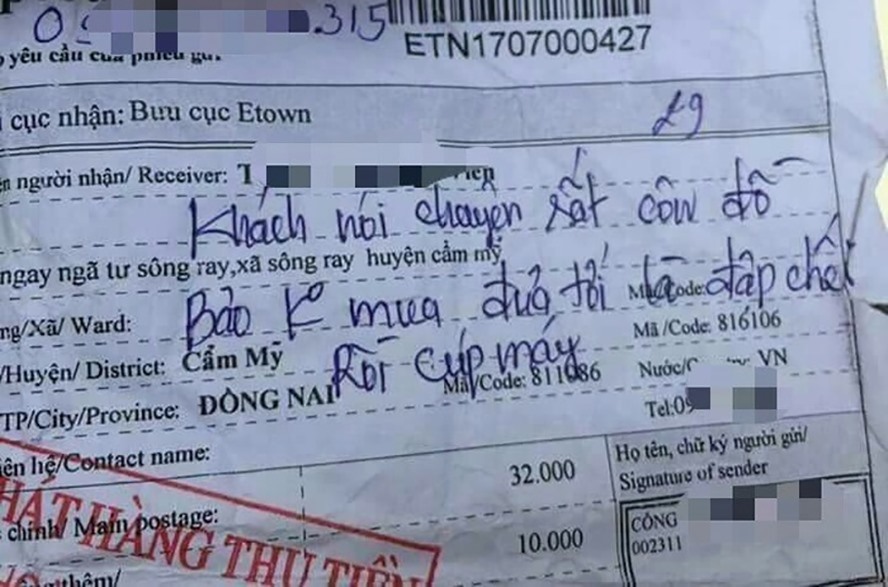 0 .315
ETN1707000427
yêu cầu của phiếu gửi.
cục nhận: Bưu cục Etown
29
người nhận/ Receiver: T
Khách nói chuyện sắt côn đồ
ngay ngã tư sông ray,xã sông ray huyện cẩm mỹ
Bảo K° mua đưa tới là đập chết
ng/Xã/ Ward: Mã/Code: 816106
/Huyện/ District: Cẩm Mỹ
Rồi cúp máy
Mã/Code: 811086 Nước/C VN
TP/City/Province: ĐỒNG NAI
Tel:09
iên hệ/Contact name:
32.000
Họ tên, chữ ký người gửi/
Signature of sender
HÁT HÀNG THU TIỀN
chính/ Main postage:
10.000
CÔNG
002311
thêm/